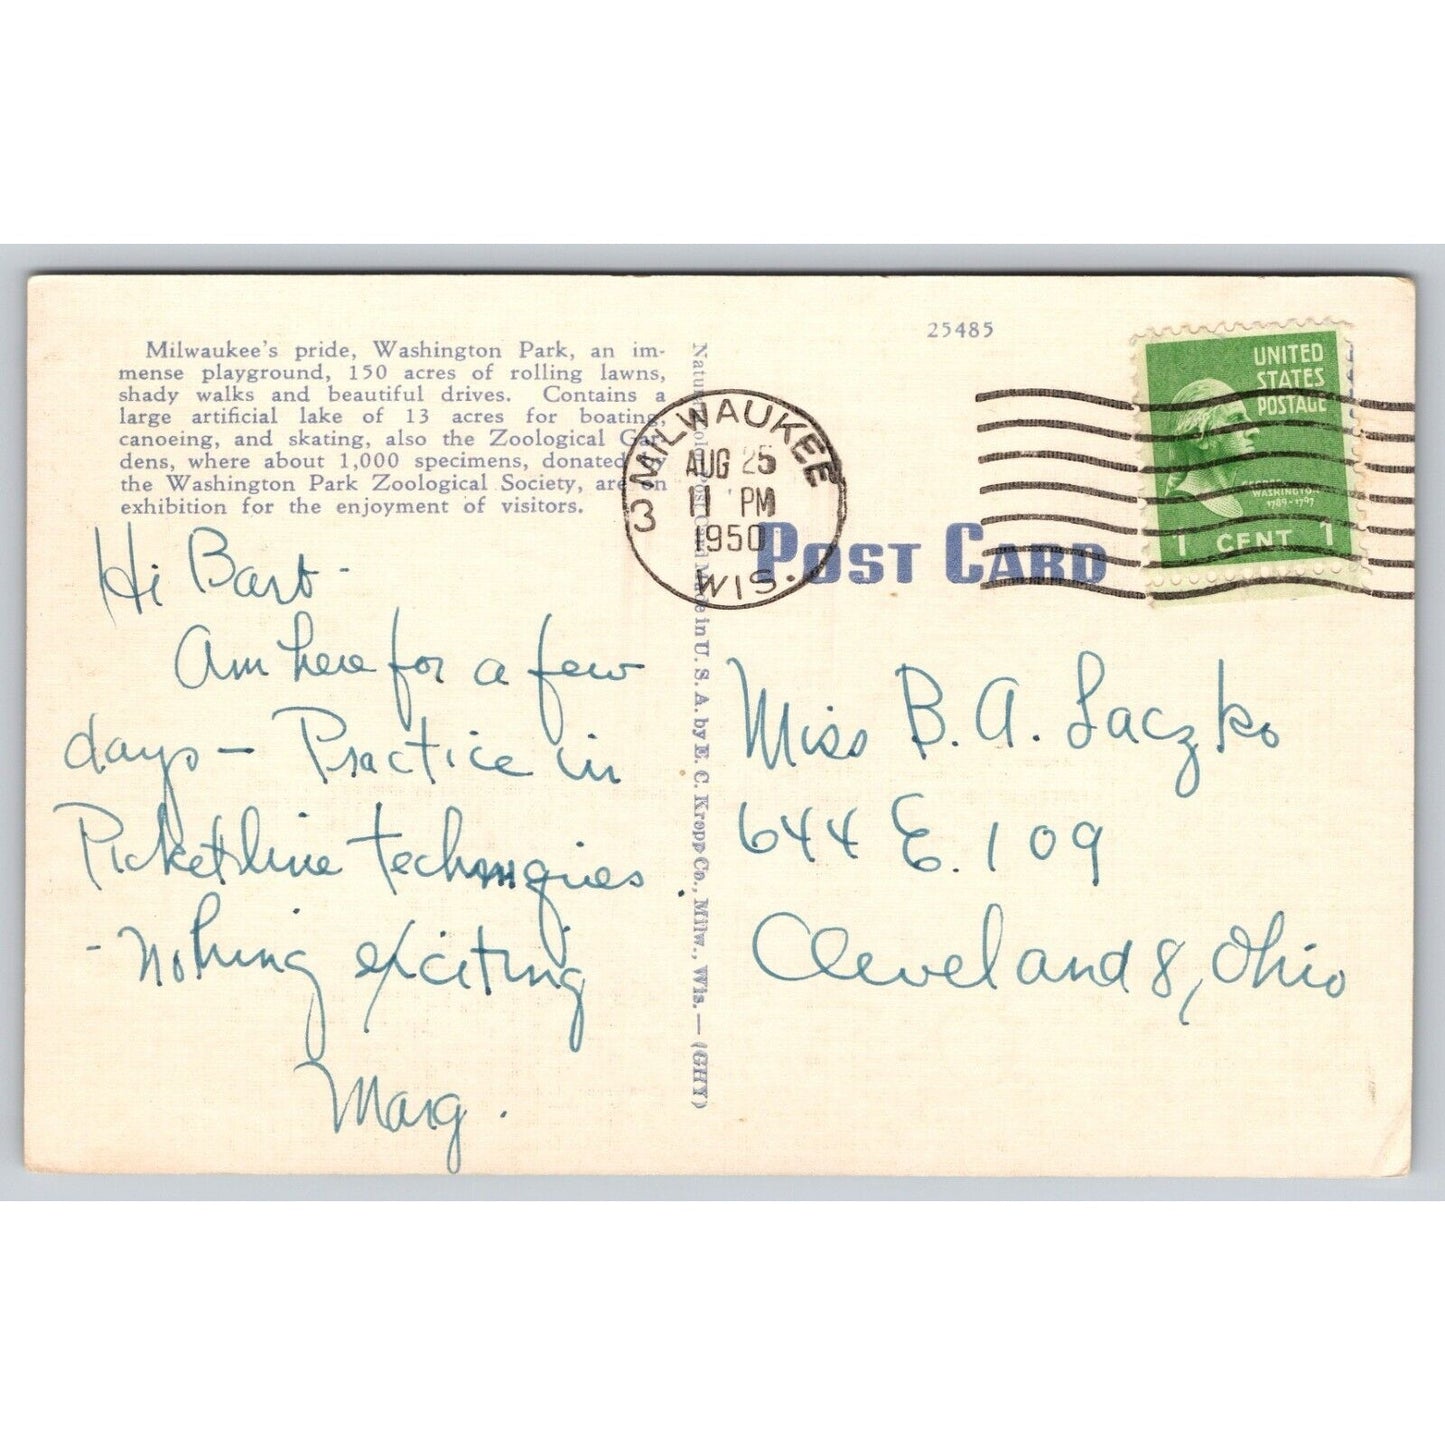 Milwaukee's pride, Washington Park, an im-
mense playground, 150 acres of rolling lawns,
shady walks and beautiful drives. Contains a
large artificial lake of 13 acres for boating,
canoeing, and skating, also the Zoological Gar-
dens, where about 1,000 specimens, donated
the Washington Park Zoological Society, are on
exhibition for the enjoyment of visitors.
Hi Barb -
Am here for a few
days - Practice in
Picketline techniques.
- nothing exciting
Marg.
Post Card Made in U. S. A. by E. C. Kropp Co., Milw., Wis. — (GHY)
25485
MILWAUKEE
AUG 25
11 PM
1950
WIS.
3
POST CARD
UNITED
STATES
POSTAGE
WASHINGTON
1789-1797
1 CENT 1
Miss B. A. Laczko
644 E. 109
Cleveland 8, Ohio